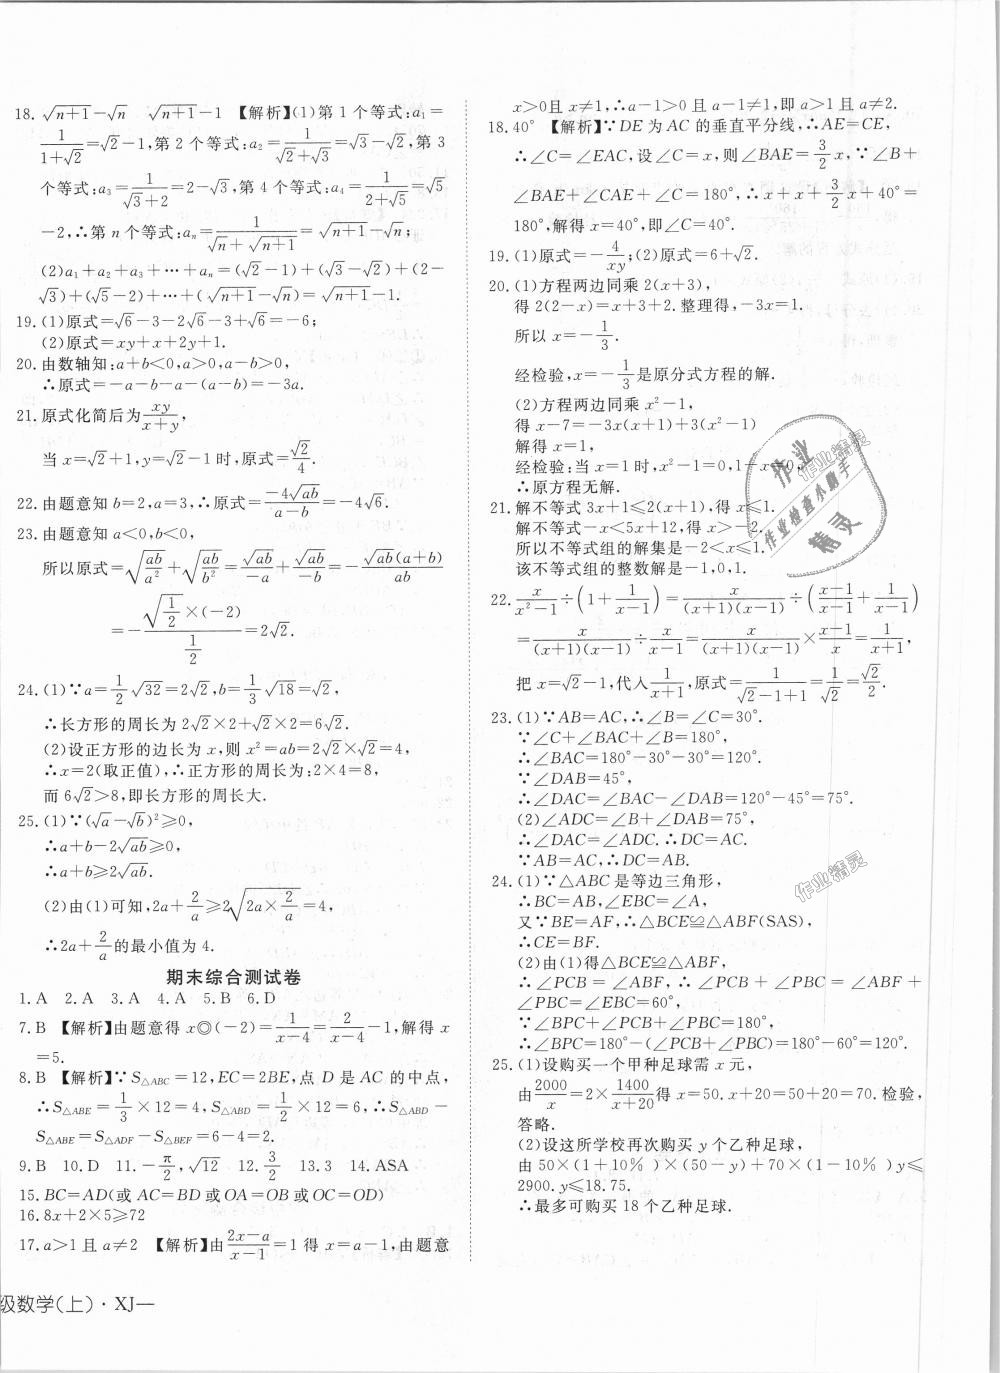 18. √(n+1)−√n　√(n+1)−1　【解析】(1)第 1 个等式:a₁=
1/(1+√2)=√2−1,第 2 个等式:a₂=1/(√2+√3)=√3−√2,第 3
个等式:a₃=1/(√3+2)=2−√3,第 4 个等式:a₄=1/(2+√5)=√5
−2,∴第 n 个等式:aₙ=1/(√n+√(n+1))=√(n+1)−√n;
(2)a₁+a₂+a₃+…+aₙ=(√2−1)+(√3−√2)+(2−
√3)+(√5−2)+…+(√(n+1)−√n)=√(n+1)−1.
19.(1)原式=√6−3−2√6−3+√6=−6;
(2)原式=xy+x+2y+1.
20.由数轴知:a+b<0,a>0,a−b>0,
∴原式=−a−b−a−(a−b)=−3a.
21.原式化简后为xy/(x+y),
当 x=√2+1,y=√2−1时,原式=√2/4.
22.由题意知 b=2,a=3,∴原式=−4√ab/(a−b)=−4√6.
23.由题意知 a<0,b<0,
所以原式=√(ab/a²)+√(ab/b²)=√ab/−a+√ab/−b=−√ab(a+b)/ab
=−√(1/2)×(−2)/(1/2)=2√2.
24.(1)∵a=1/2√32=2√2,b=1/3√18=√2,
∴长方形的周长为 2√2×2+√2×2=6√2.
(2)设正方形的边长为 x,则 x²=ab=2√2×√2=4,
∴x=2(取正值),∴正方形的周长为:2×4=8,
而 6√2>8,即长方形的周长大.
25.(1)∵(√a−√b)²≥0,
∴a+b−2√ab≥0,
∴a+b≥2√ab.
(2)由(1)可知,2a+2/a≥2√(2a×2/a)=4,
∴2a+2/a的最小值为 4.
期末综合测试卷
1.A　2.A　3.A　4.A　5.B　6.D
7.B　【解析】由题意得 x◎(−2)=1/(x−4)=2/(x−4)−1,解得 x
=5.
8.B　【解析】∵S△ABC=12,EC=2BE,点 D 是 AC 的中点,
∴S△ABE=1/3×12=4,S△ABD=1/2×12=6,∴S△ABD−
S△ABE=S△ADF−S△BEF=6−4=2.
9.B　10.D　11.−π/2,√12　12.3/2　13.3　14.ASA
15.BC=AD(或 AC=BD 或 OA=OB 或 OC=OD)
16.8x+2×5≥72
17.a>1 且 a≠2　【解析】由(2x−a)/(x−1)=1 得 x=a−1,由题意
级数学(上)·XJ—
x>0且 x≠1,∴a−1>0 且 a−1≠1,即 a>1 且 a≠2.
18.40°　【解析】∵DE 为 AC 的垂直平分线,∴AE=CE,
∴∠C=∠EAC,设∠C=x,则∠BAE=3/2x,∵∠B+
∠BAE+∠CAE+∠C=180°,∴x+x+3/2x+40°=
180°,解得 x=40°,即∠C=40°.
19.(1)原式=−4/xy;(2)原式=6+√2.
20.(1)方程两边同乘 2(x+3),
得 2(2−x)=x+3+2.整理得,−3x=1.
所以 x=−1/3.
经检验,x=−1/3是原分式方程的解.
(2)方程两边同乘 x²−1,
得 x−7=−3x(x+1)+3(x²−1)
解得 x=1.
经检验:当 x=1时,x²−1=0,1+x=0,
∴原方程无解.
21.解不等式 3x+1≤2(x+1),得 x≤1.
解不等式−x<5x+12,得 x>−2.
所以不等式组的解集是−2<x≤1.
该不等式组的整数解是−1,0,1.
22.x/(x²−1)÷(1+1/(x−1))=x/((x+1)(x−1))÷((x−1)/(x−1)+1/(x−1))
=x/((x+1)(x−1))÷x/(x−1)=x/((x+1)(x−1))×(x−1)/x=1/(x+1),
把 x=√2−1,代入1/(x+1),原式=1/(√2−1+1)=1/√2=√2/2.
23.(1)∵AB=AC,∴∠B=∠C=30°.
∵∠C+∠BAC+∠B=180°,
∴∠BAC=180°−30°−30°=120°.
∵∠DAB=45°,
∴∠DAC=∠BAC−∠DAB=120°−45°=75°.
(2)∠ADC=∠B+∠DAB=75°,
∴∠DAC=∠ADC.∴DC=AC.
∵AB=AC,∴DC=AB.
24.(1)∵△ABC 是等边三角形,
∴BC=AB,∠EBC=∠A,
又∵BE=AF,∴△BCE≌△ABF(SAS),
∴CE=BF.
(2)由(1)得△BCE≌△ABF,
∴∠PCB=∠ABF,∴∠PCB+∠PBC=∠ABF+
∠PBC=∠EBC=60°,
∵∠BPC+∠PCB+∠PBC=180°,
∴∠BPC=180°−(∠PCB+∠PBC)=180°−60°=120°.
25.(1)设购买一个甲种足球需 x 元,
由2000/x=2×1400/(x+20)得 x=50.x+20=50+20=70.检验,
答略.
(2)设这所学校再次购买 y 个乙种足球,
由 50×(1+10%)×(50−y)+70×(1−10%)y≤
2900.y≤18.75.
∴最多可购买 18 个乙种足球.
作业精灵
作业检查小助手
作业
精灵
作业精灵